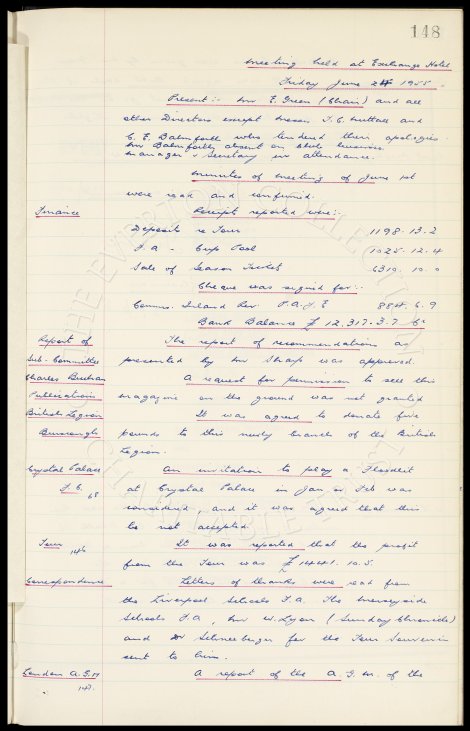 148
Meeting held at Exchange Hotel
Friday June 24 1955.
Present:- Mr E. Green (Chair) and all
other Directors except Messrs T.C. Nuttall and
C. E. Balmforth who tendered their apologies.
Mr Balmforth absent on club business
Manager & Secretary in attendance.
Minutes of meeting of June 1st
were read and confirmed.
Finance Receipts reported were:-
Deposits re Tour 1198.13.2
F.A - Cup Pool 1025.12.4
Sale of Season Tickets 6319.10.0
Cheque was signed for:-
Comms. Inland Rev P.A.Y.E 884.6.9
Bank Balance £ 12,317.3.7 Cr
Report of The report of recommendations as
Sub-Committee presented by Mr Sharp was approved.
Charles Buchan A request for permission to sell this
Publications magazine on the ground was not granted
British Legion It was agreed to donate five
Burscough pounds to this newly branch of the British
Legion.
Crystal Palace An invitation to play a Floodlit
F.C. 68 at Crystal Palace in Jan or Feb was
considered, and it was agreed that this
be not accepted.
Tour 146 It was reported that the profit
from the Tour was £ 1441.10.5.
Correspondence Letters of thanks were read from
the Liverpool Schools F.A, The Merseyside
Schools F.A, Mr W. Lyon (Sunday Chronicle)
and Dr Schneeberger for the Tour Souvenir
sent to him.
London A.G.M A report of the A.G.M. of the
147.
THE EVERTON COLLECTION
CHARITABLE TRUST